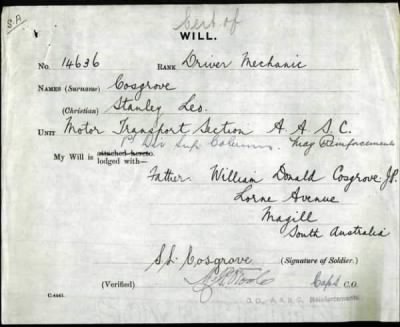 S.A.
Cert of
WILL.
No. 14636 RANK Driver Mechanic
NAMES (Surname) Cosgrove
(Christian) Stanley Leo.
UNIT Motor Transport Section A.A.S.C.
1st Div Sup. Column. May Reinforcements
My Will is attached hereto.
lodged with—
Father. William Donald Cosgrove J.P.
Lorne Avenue
Magill
South Australia
S.L. Cosgrove (Signature of Soldier.)
(Verified) Capt C.O.
O.C. A.A.S.C. Reinforcements